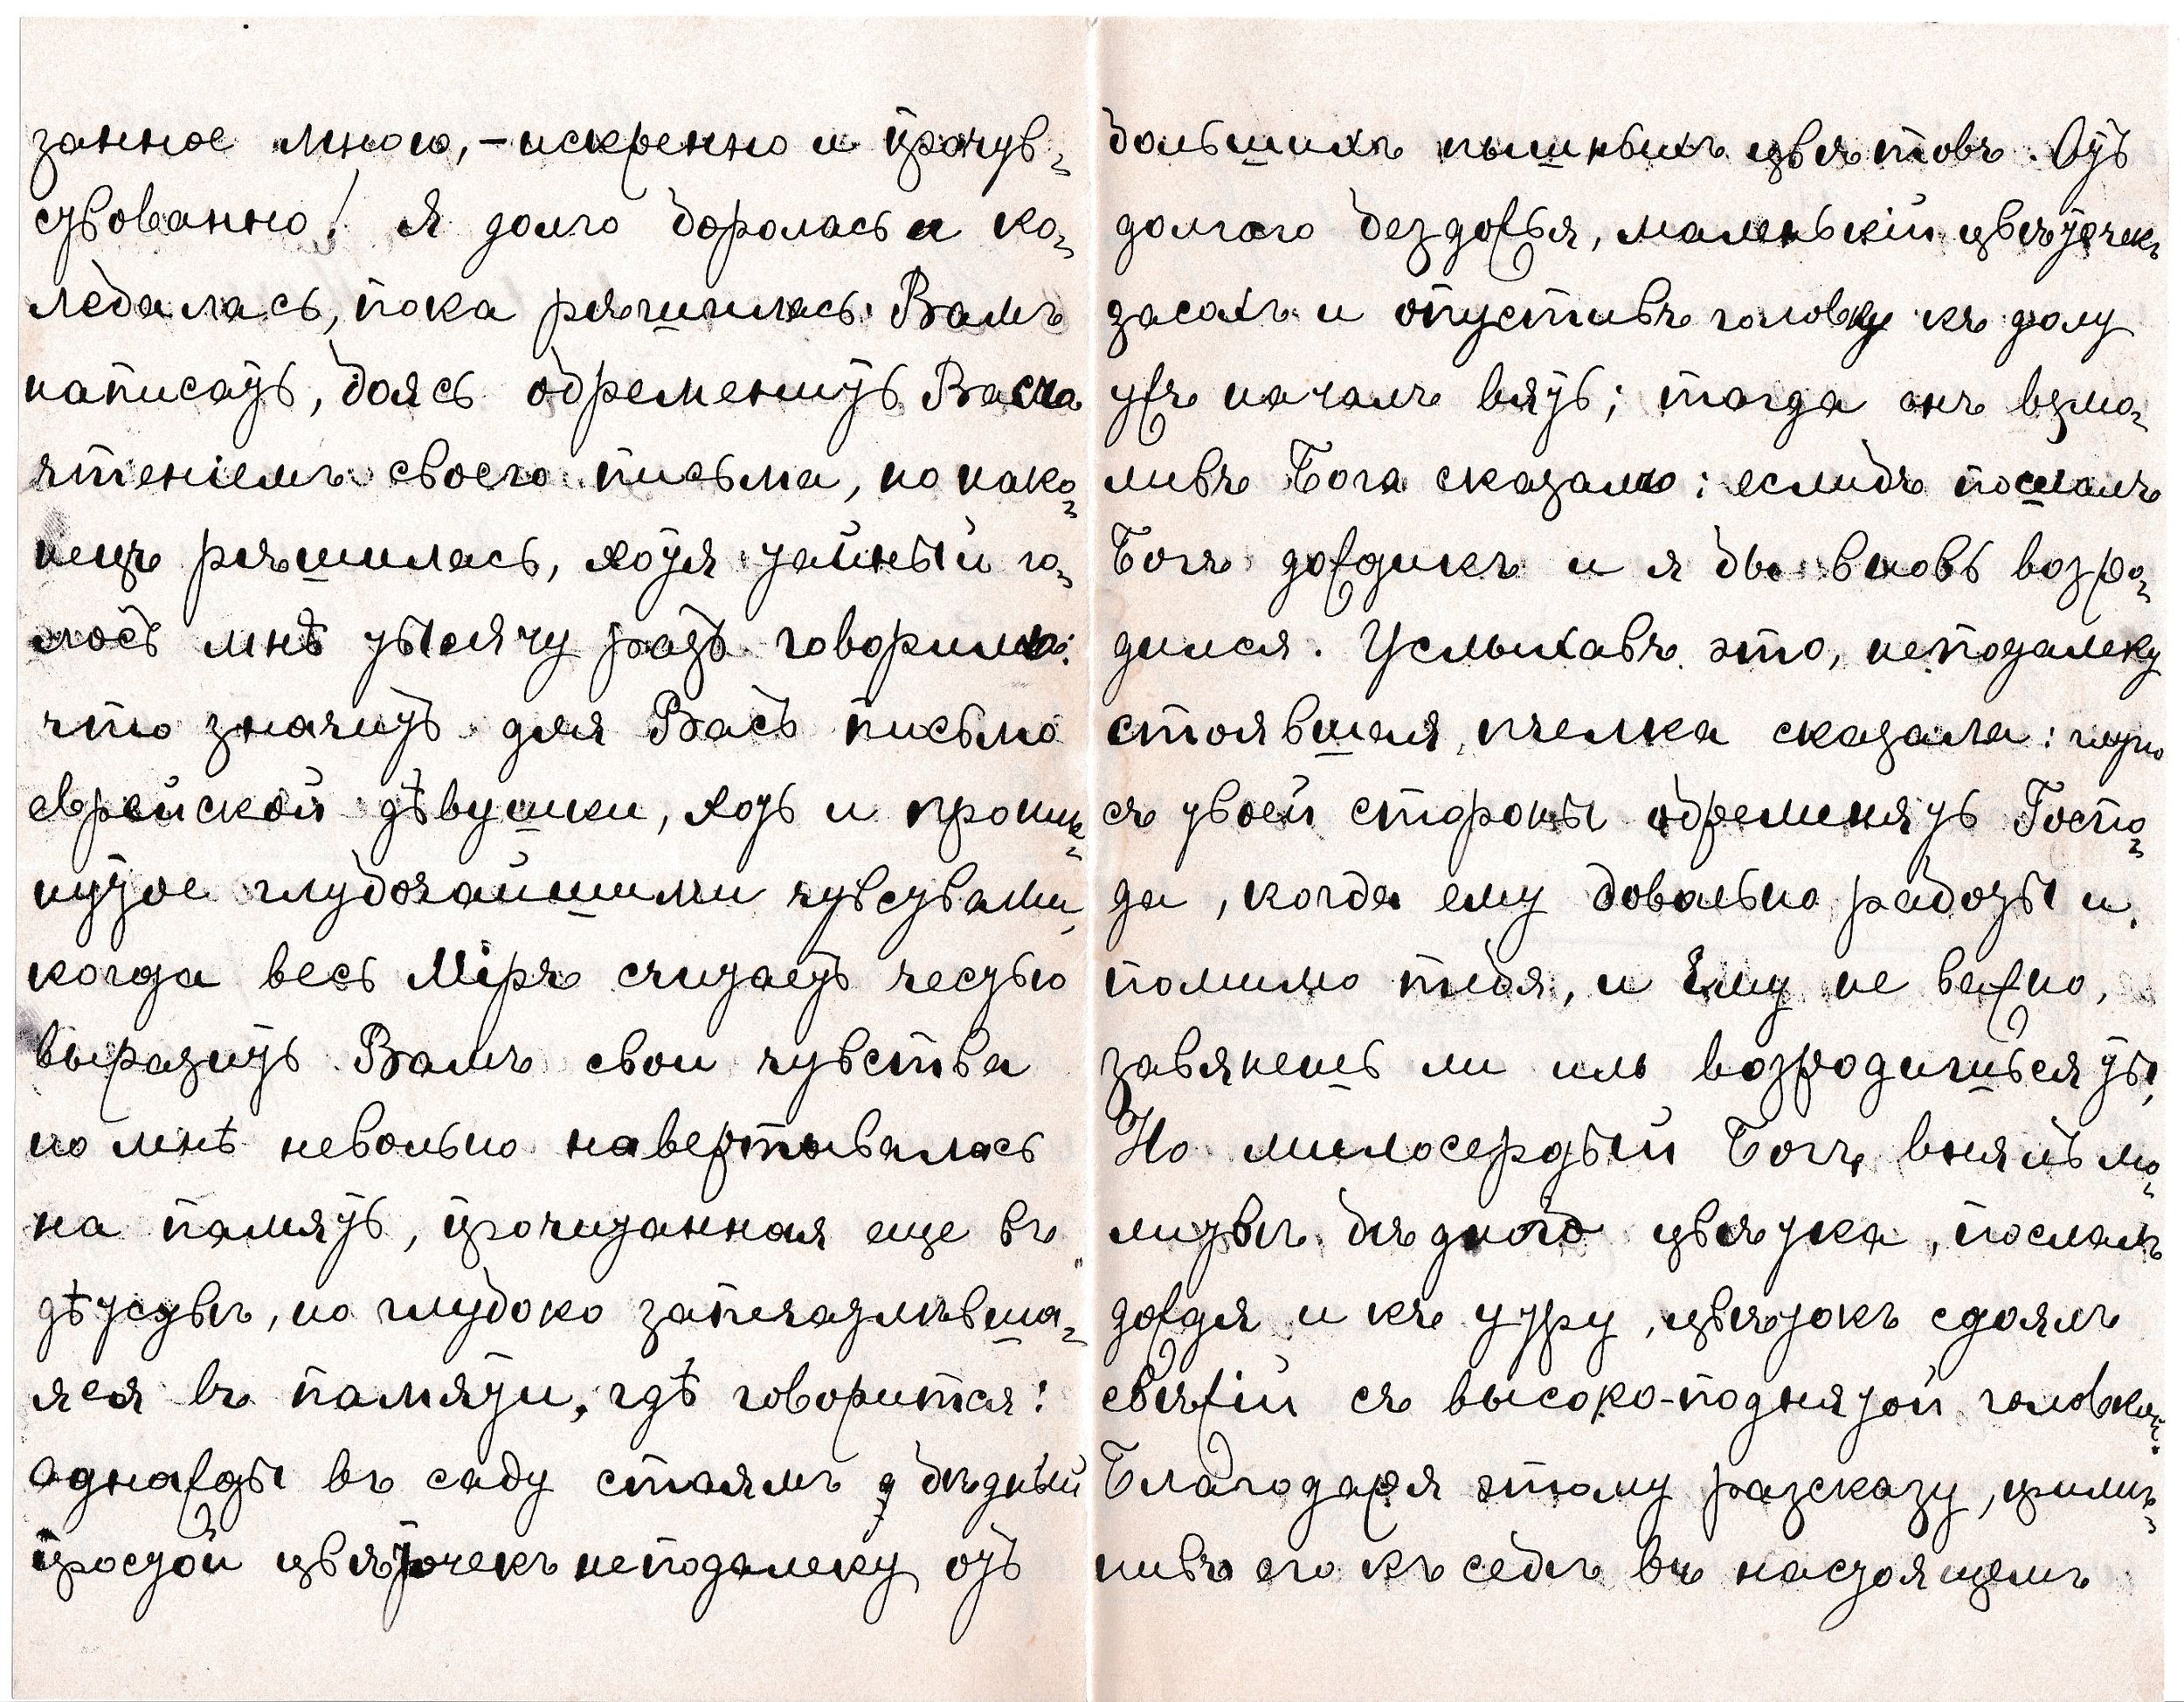 занное мною, – искренно и прочув-
ствованно! Я долго боролась и ко-
лебалась, пока рѣшилась Вамъ
написать, боясь обременить Васъ
чтеніемъ своего письма, но нако-
нецъ рѣшилась, хотя тайный го-
лосъ мнѣ тысячу разъ говорилъ:
что значитъ для Васъ письмо
еврейской дѣвушки, хоть и проник-
нутое глубочайшими чувствами,
когда весь Міръ считаетъ честью
выразить Вамъ свои чувства
но мнѣ невольно навертывалась
на память, прочитанная еще въ
дѣтствѣ, но глубоко запечатлѣвша-
яся въ памяти, гдѣ говорится:
однажды въ саду стоялъ бѣдный
простой цвѣточекъ неподалеку отъ
большихъ пышныхъ цвѣтовъ. Отъ
долгаго бездождья, маленькій цвѣточекъ
засохъ и опустивъ головку къ долу
ужъ началъ вять; тогда онъ взмо-
ливъ Бога сказалъ: еслибъ послалъ
Богъ дождикъ и я бы вновь возро-
дился. Услыхавъ это, неподалеку
стоявшая, пчелка сказала: глупо
съ твоей стороны обременять Госпо-
да, когда ему довольно работы и
помимо тебя, и Ему не важно,
завянешь ли иль возродишься ты,
Но милосердый Богъ, внялъ мо-
литвѣ бѣдного цвѣтка, послалъ
дождя и къ утру, цвѣтокъ стоялъ
свѣжій съ высоко-поднятой головкой.
Благодаря этому разсказу, примѣ-
нивъ его къ себѣ въ настоящемъ